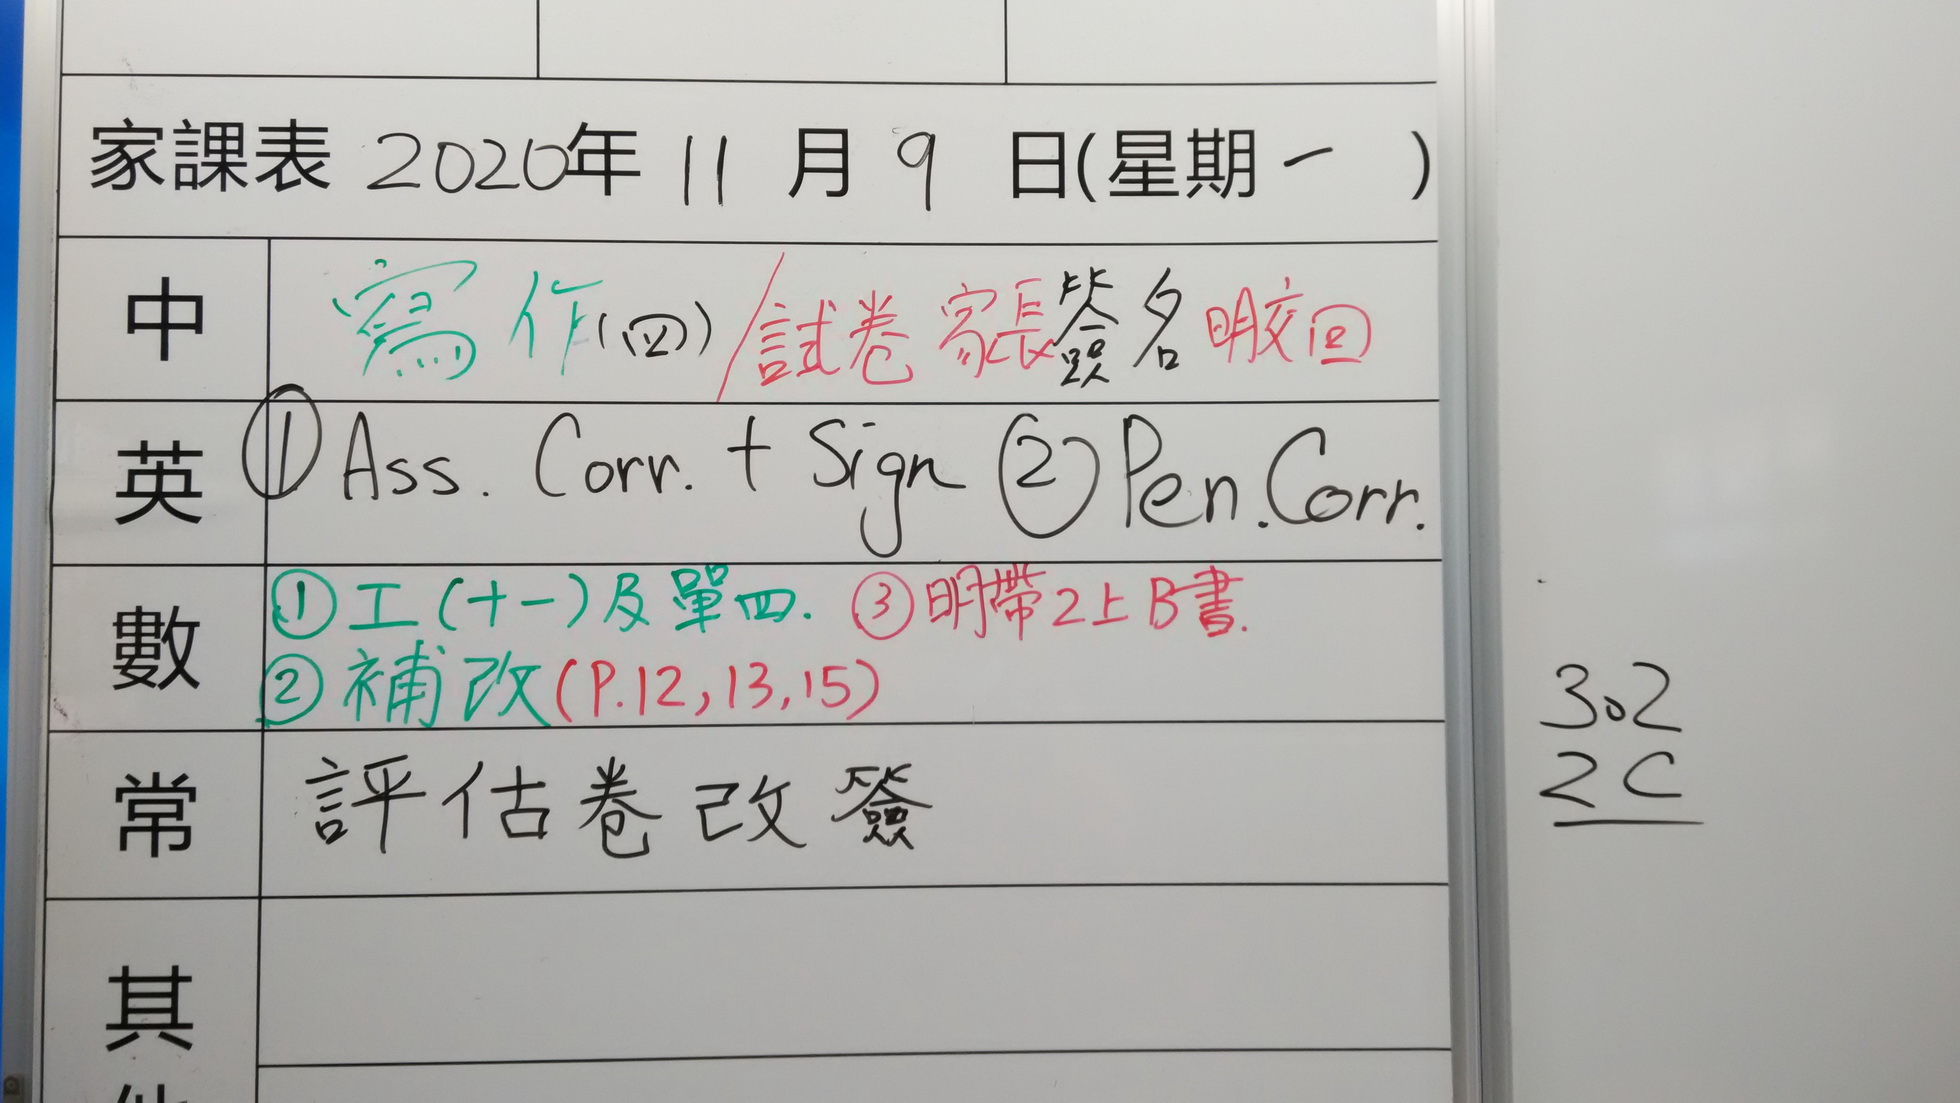 家課表 2020年 11 月 9 日(星期一 )
中 寫作(四)/試卷家長簽名明交回
英 ①Ass. Corr. + Sign ②Pen. Corr.
數 ①工(十一)及單四. ③明帶2上B書.
②補改(P.12,13,15)
常 評估卷改簽
其他
302
2C